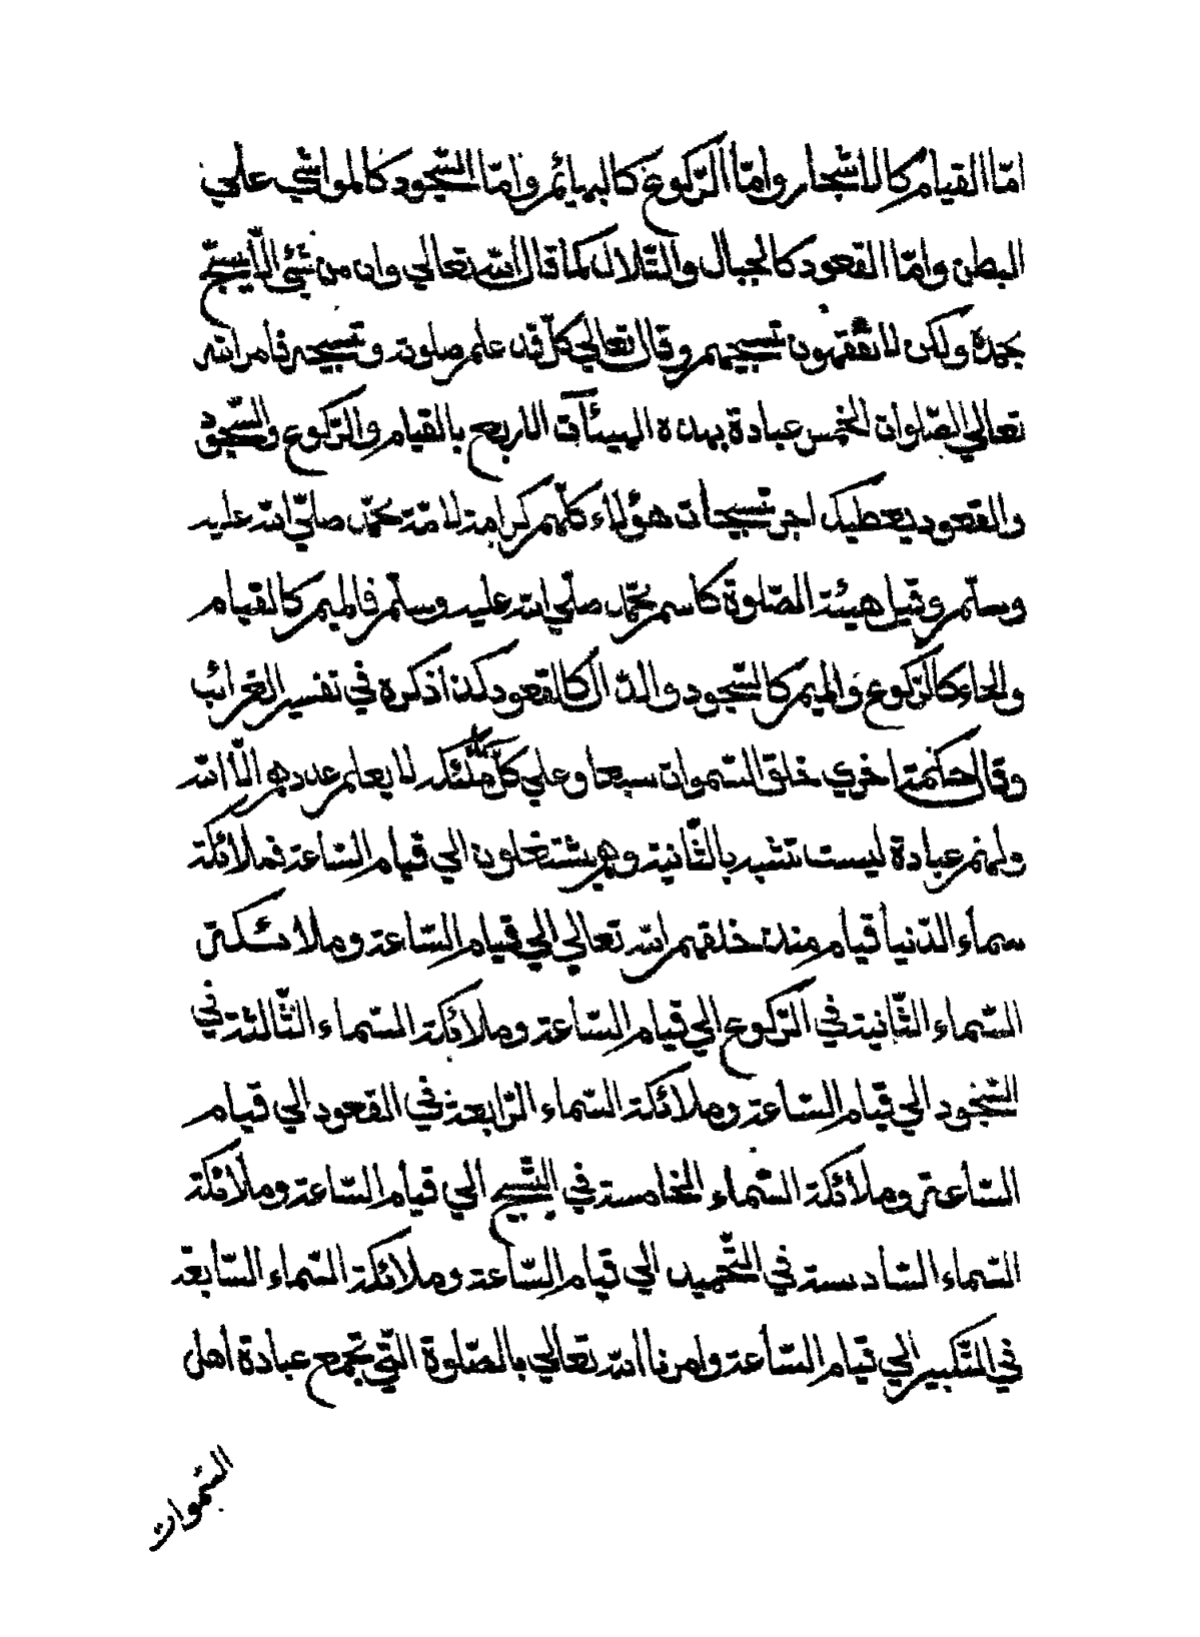 امّا القيام كالاشجار وامّا الرّكوع كالبهايم وامّا السّجود كالمواشي علي
البطن وامّا القعود كالجبال والتّلال كما قال الله تعالي وان من شئ الّا يسبّح
بحمده ولكن لا تفقهون تسبيحهم وقال تعالي كلّ قد علم صلوته وتسبيحه فامر الله
تعالي الصّلوات الخمس عبادة بهذه الهيئآت الاربع بالقيام والرّكوع والسّجود
والقعود يعطيك اجر تسبيحات هؤلاء كلّهم كرامة لامّة محمّد صلّي الله عليه
وسلّم وقيل هيئة الصّلوة كاسم محمّد صلّي الله عليه وسلّم فالميم كالقيام
والحاء كالرّكوع والميم كالسّجود والدّال كالقعود كذا ذكره في تفسير الغرائب
وقال حكمة اخري خلق السّموات سبعا وعلي كلّ ملئكة لا يعلم عددهم الّا الله
ولهم عبادة ليست تشبه بالثّانية وهم يشتغلون الي قيام السّاعة فملائكة
سماء الدّنيا قيام منذ خلقهم الله تعالي الي قيام السّاعة وملائكة
السّماء الثّانية في الرّكوع الي قيام السّاعة وملائكة السّماء الثّالثة في
السّجود الي قيام السّاعة وملائكة السّماء الرّابعة في القعود الي قيام
السّاعة وملائكة السّماء الخامسة في التّسبيح الي قيام السّاعة وملائكة
السّماء السّادسة في التّحميد الي قيام السّاعة وملائكة السّماء السّابعة
في التّكبير الي قيام السّاعة وامرنا الله تعالي بالصّلوة الّتي تجمع عبادة اهل
السّموات